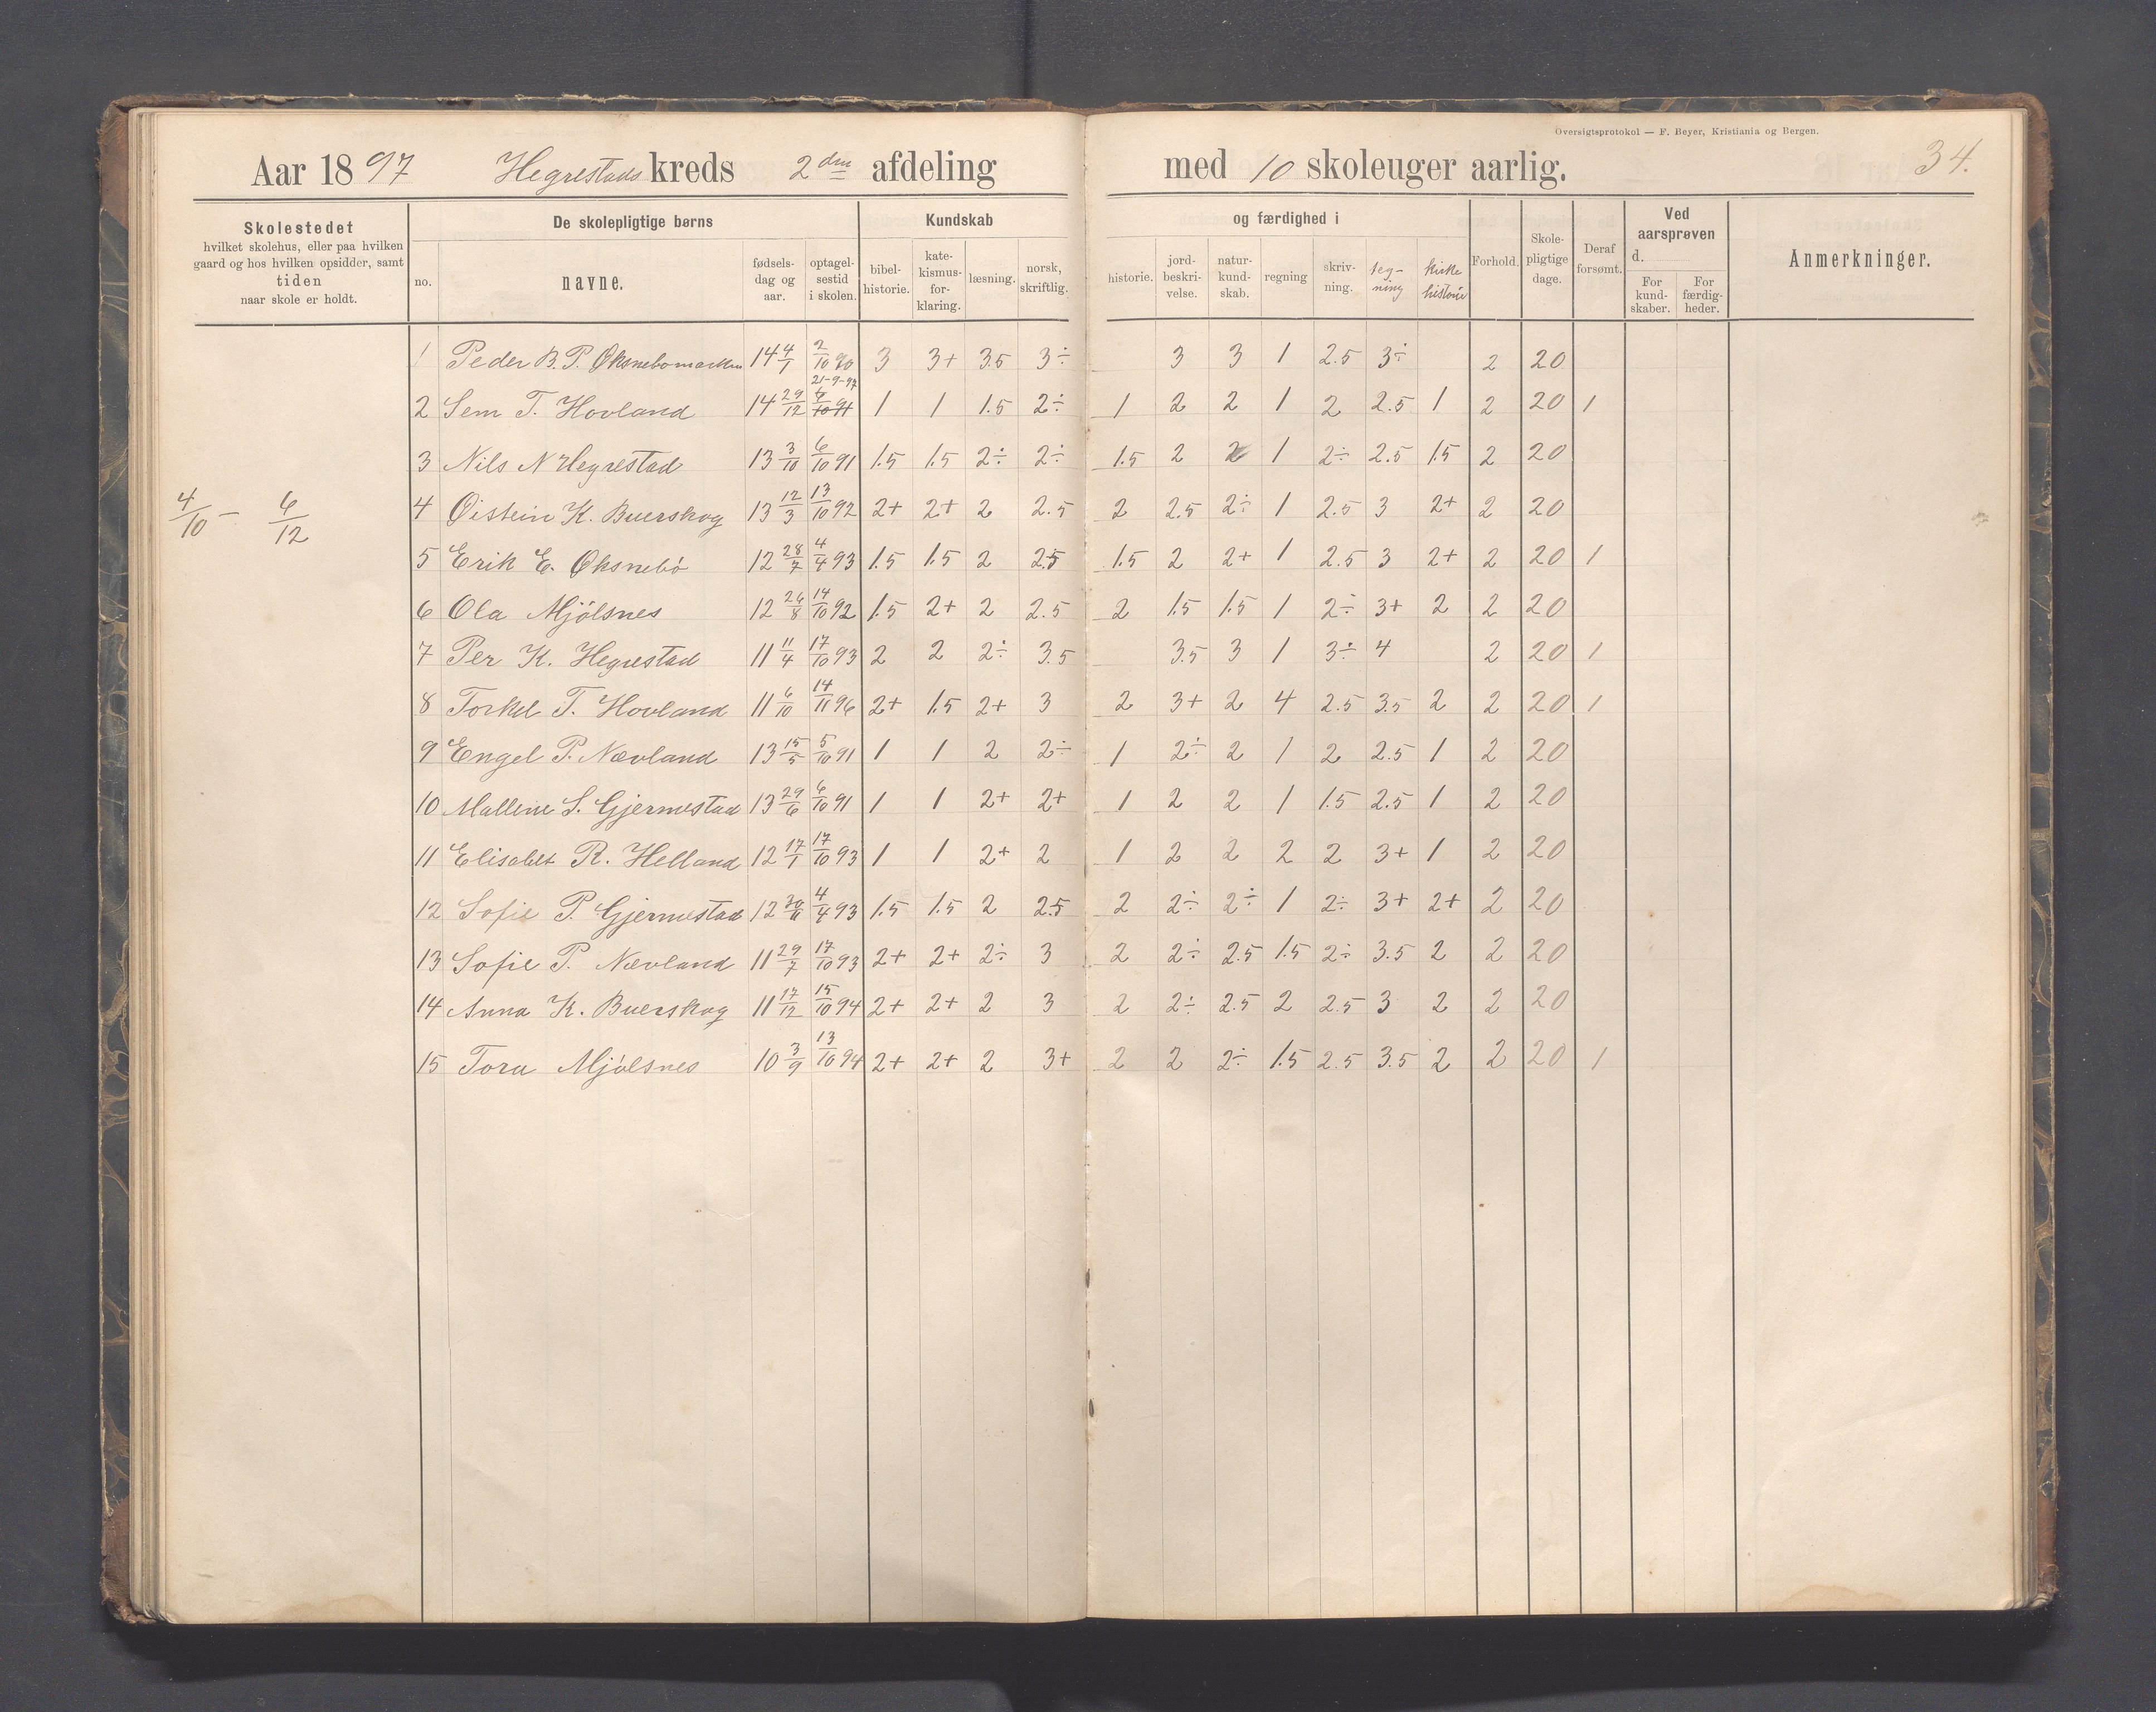 Oversigtsprotokol — F. Beyer, Kristiania og Bergen.
34.
Aar 1897 Hegrestads kreds 2den afdeling med 10 skoleuger aarlig.
Skolestedet hvilket skolehus, eller paa hvilken gaard og hos hvilken opsidder, samt tiden naar skole er holdt.
De skolepligtige børns
no. navne. fødsels-dag og aar. optagel-sestid i skolen.
Kundskab og færdighed i
bibel-historie. kate-kismus-for-klaring. læsning. norsk, skriftlig. historie. jord-beskri-velse. natur-kund-skab. regning skriv-ning. teg-ning kirke historie
Forhold. Skole-pligtige dage. Deraf forsømt.
Ved aarsprøven d.
For kund-skaber. For færdig-heder.
Anmerkninger.
4/10 – 6/12
1 Peder B. P. Øksnebomarken 14 4/1 2/10 90 3 3+ 3.5 3÷ 3 3 1 2.5 3÷ 2 20
21-9-97
2 Sem T. Hovland 14 29/12 1 1 1.5 2÷ 1 2 2 1 2 2.5 1 2 20 1
3 Nils N Hegrestad 13 3/10 6/10 91 1.5 1.5 2÷ 2÷ 1.5 2 2 1 2÷ 2.5 1.5 2 20
4 Øistein K. Buerskog 13 12/3 13/10 92 2+ 2+ 2 2.5 2 2.5 2÷ 1 2.5 3 2+ 2 20
5 Erik E. Øksnebö 12 28/7 4/4 93 1.5 1.5 2 2.5 1.5 2 2+ 1 2.5 3 2+ 2 20 1
6 Ola Mjölsnes 12 26/8 14/10 92 1.5 2+ 2 2.5 2 1.5 1.5 1 2÷ 3+ 2 2 20
7 Per K. Hegrestad 11 11/4 17/10 93 2 2 2÷ 3.5 3.5 3 1 3÷ 4 2 20 1
8 Torkel T. Hovland 11 6/10 14/11 96 2+ 1.5 2+ 3 2 3+ 2 4 2.5 3.5 2 2 20 1
9 Engel P. Nævland 13 15/5 5/10 91 1 1 2 2÷ 1 2÷ 2 1 2 2.5 1 2 20
10 Mallene S. Gjermestad 13 29/6 6/10 91 1 1 2+ 2+ 1 2 2 1 1.5 2.5 1 2 20
11 Elisabet R. Helland 12 17/1 17/10 93 1 1 2+ 2 1 2 2 2 2 3+ 1 2 20
12 Sofie P. Gjermestad 12 4/4 93 1.5 1.5 2 2.5 2 2÷ 2÷ 1 2÷ 3+ 2+ 2 20
13 Sofie P. Nævland 11 29/7 17/10 93 2+ 2+ 2÷ 3 2 2÷ 2.5 1.5 2÷ 3.5 2 2 20
14 Anna K. Buerskog 11 17/12 15/10 94 2+ 2+ 2 3 2 2÷ 2.5 2 2.5 3 2 2 20
15 Tora Mjölsnes 10 3/9 13/10 94 2+ 2+ 2 3+ 2 2 2÷ 1.5 2.5 3.5 2 2 20 1